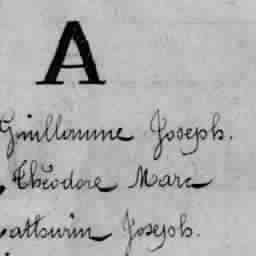 A
Guillomme Joseph.
Théodore Marc
athurin Joseph.